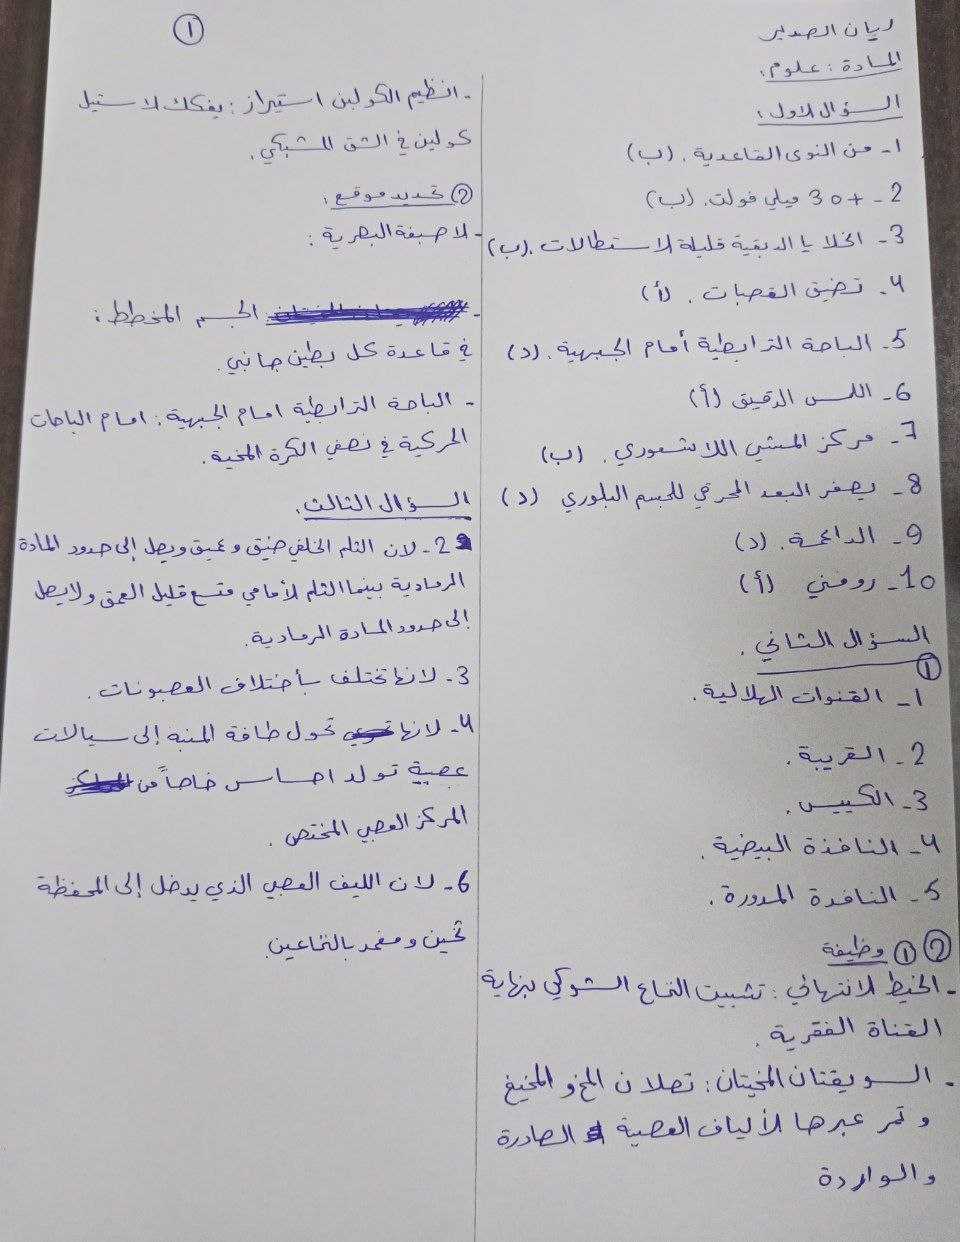 ريان الصدير
المادة : علوم.
السؤال الاول :
1- من النوى القاعدية . (ب)
2- +30 ميلي فولت. (ب)
3- الخلايا الدبقية قليلة الاستطالات . (ب)
4- تضيق القصبات . (أ)
5- الباحة الترابطية أمام الجبهية . (د)
6- اللمس الدقيق (أ)
7- مركز المشي اللاشعوري . (ب)
8- يصغر البعد المحرقي للجسم البلوري (د)
9- الداعمة . (د)
10- رومني (أ)
السؤال الثاني .
①
1- القنوات الهلالية .
2- القريبة .
3- الكييس .
4- النافذة البيضية .
5- النافدة المدورة .
② ① وظيفة
- الخيط الانتهائي : تثبيت النخاع الشوكي بنهاية
القناة الفقرية .
- السويقتان المخيتان : تصلان المخ و المخيخ
و تمر عبرها الألياف العصبية الصادرة
والواردة
①
- انظيم الكولين استيراز : يفكك الاستيل
كولين في الشق المشبكي .
② تحديد موقع :
- لاصبغة البصرية :
- الجسم المخطط :
في قاعدة كل بطين جانبي .
- الباحة الترابطية امام الجبهية : امام الباحات
الحركية في نصفي الكرة المخية .
السؤال الثالث .
2- لان الثلم الخلفي ضيق و عميق ويصل إلى حدود المادة
الرمادية بينما الثلم الأمامي متسع قليل العمق ولا يصل
إلى حدود المادة الرمادية .
3- لانها تختلف بأختلاف العصبونات .
4- لانها تحول طاقة المنبه إلى سيالات
عصبية تولد احساس خاصاً من
المركز العصبي المختص .
6- لان الليف العصبي الذي يدخل إلى المحفظة
ثخين و مغمد بالنخاعين